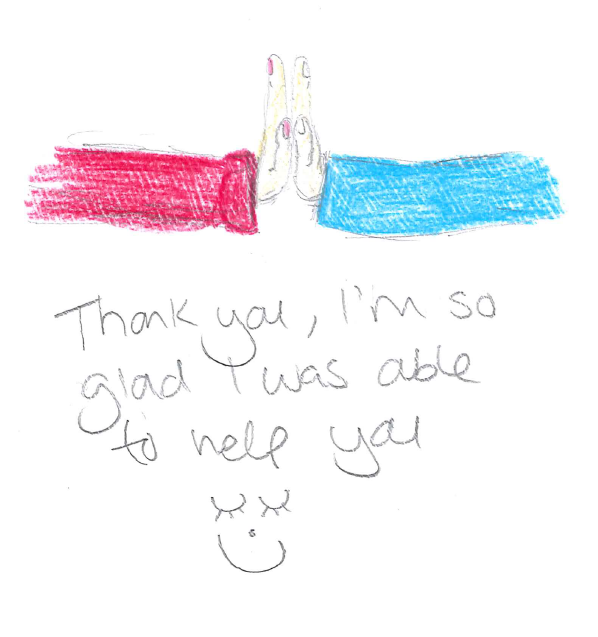 Thank you, I'm so
glad I was able
to help you